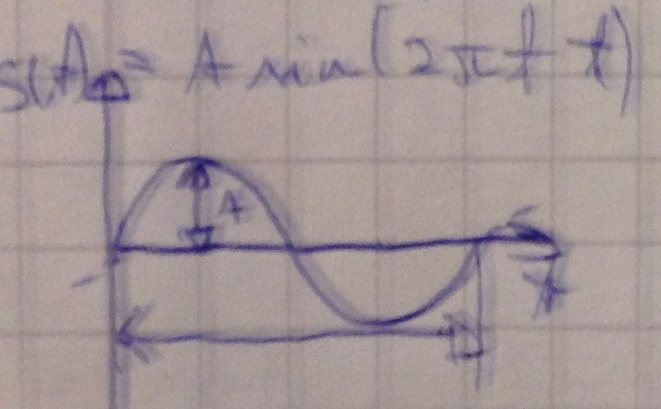 s(t) = A sin(2πft)
A
t